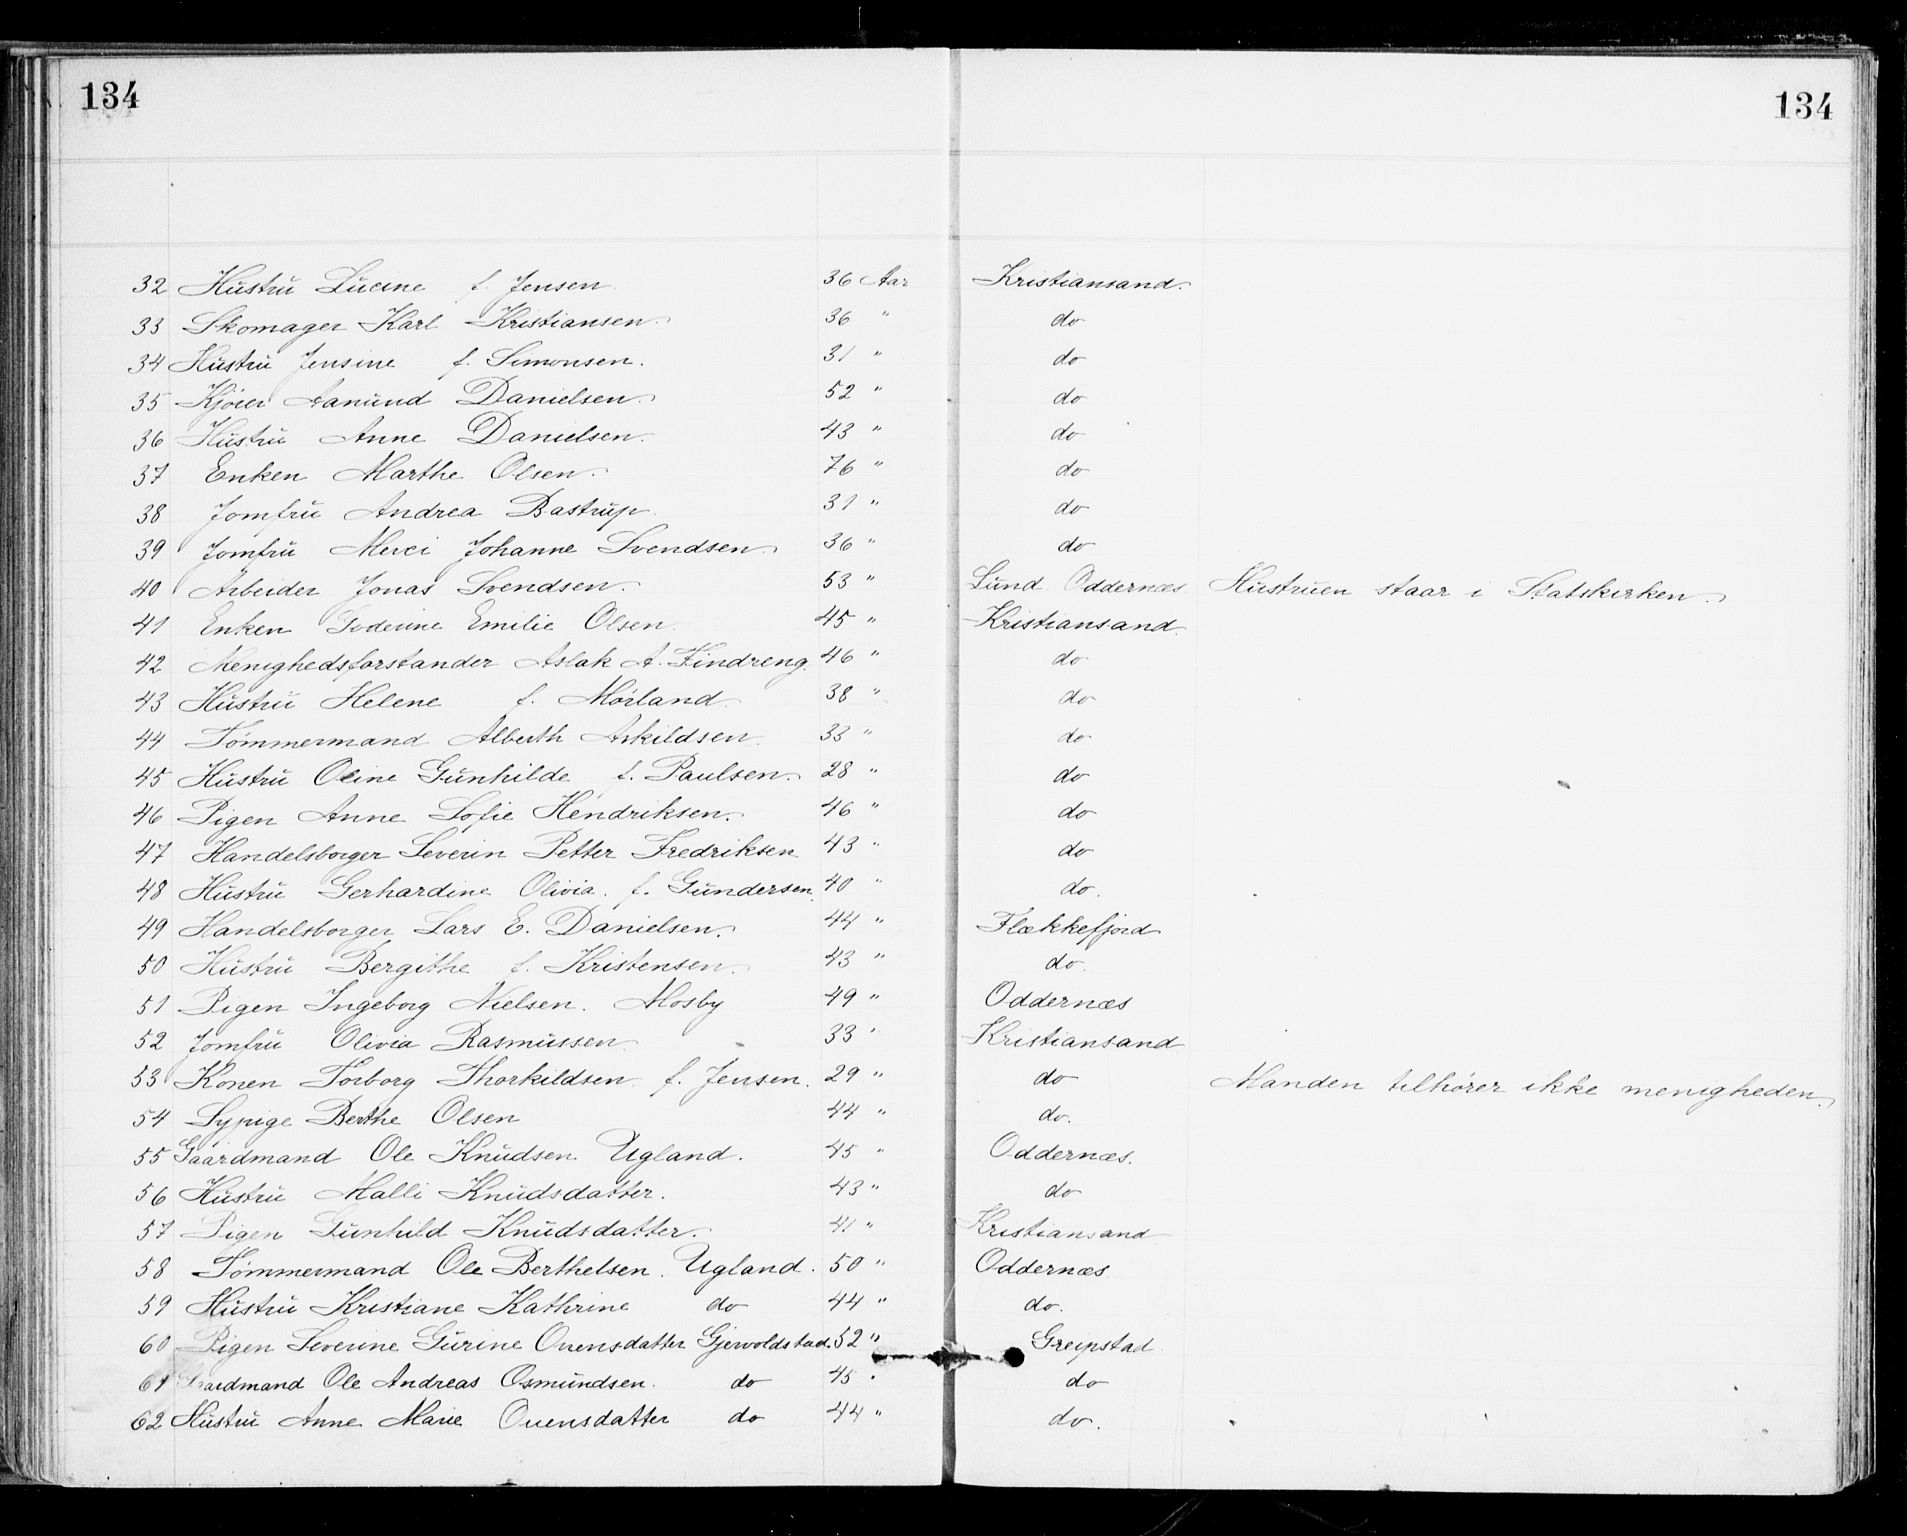 134 134
32 Hustru Lucine f. Jensen 36 Aar Kristiansand.
33 Skomager Karl Kristiansen. 36 " do
34 Hustru Jensine f. Simonsen. 31 " do
35 Kjører Aanund Danielsen. 52 " do
36 Hustru Anne Danielsen. 43 " do
37 Enken Marthe Olsen. 76 " do
38 Jomfru Andrea Bastrup. 31 " do
39 Jomfru Merci Johanne Svendsen. 36 " do
40 Arbeider Jonas Svendsen. 53 " Lund Oddernæs Hustruen staar i Statskirken.
41 Enken Emilie Olsen. 45 " Kristiansand.
42 Menighedsforstander Aslak A. Findreng. 46 " do
43 Hustru Helene f. Mørland. 38 " do
44 Tømmermand Alberth Askildsen. 33 " do
45 Hustru Oline Gunhilde f. Paulsen. 28 " do
46 Pigen Anne Sofie Hendriksen. 46 " do
47 Handelsborger Severin Petter Fredriksen 43 " do
48 Hustru Gerhardine Olivia. f. Gundersen. 40 " do.
49 Handelsborger Lars E. Danielsen. 44 " Flækkefjord
50 Hustru Bergithe f. Kristensen. 43 " do.
51 Pigen Ingeborg Nielsen. Mosby 49 " Oddernæs
52 Jomfru Olivia Rasmussen. 33 " Kristiansand
53 Konen Torborg Thorkildsen. f. Jensen. 29 " do Manden tilhører ikke menigheden.
54 Sypige Berthe Olsen 44 " do.
55 Gaardmand Ole Knudsen Ugland. 45 " Oddernæs.
56 Hustru Malli Knudsdatter. 43 " do
57 Pigen Gunhild Knudsdatter. 41 " Kristiansand
58 Tømmermand Ole Berthelsen. Ugland. 50 " Oddernæs
59 Hustru Kristiane Kathrine do 44 " do.
60 Pigen Severine Gurine Ouensdatter Gjervoldstad. 52 " Greipstad.
61 Gaardmand Ole Andreas Osmundsen. do 45 " do
62 Hustru Anne Marie Ouensdatter do 44 " do.